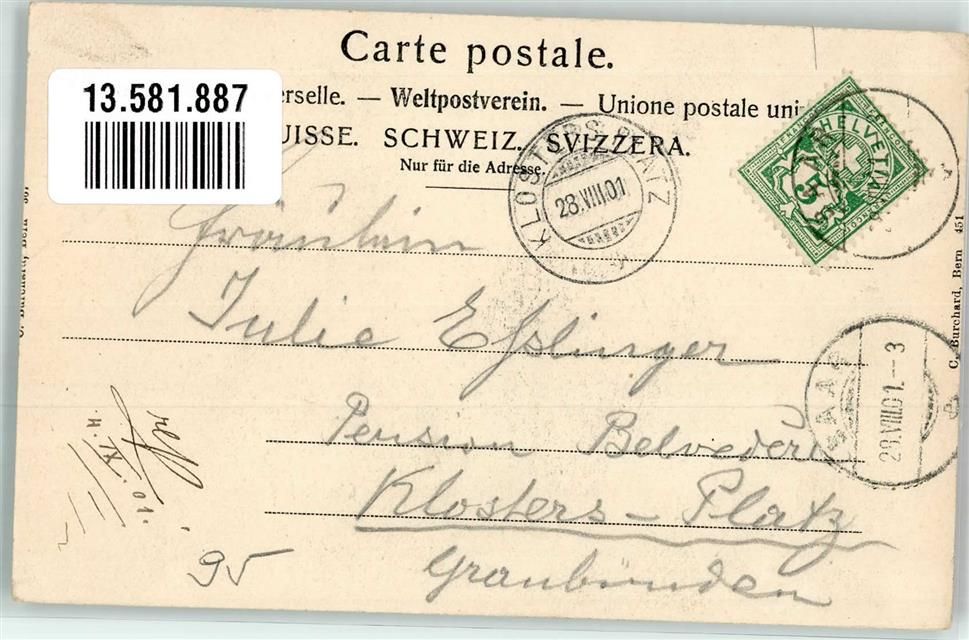 Carte postale.
13.581.887
erselle. — Weltpostverein. — Unione postale uni
UISSE. SCHWEIZ. SVIZZERA.
Nur für die Adresse.
KLOSTERS PLATZ
28.VIII.01
HELVETIA
5
Fräulein
Julie Eßlinger
C. Burchard, Bern 451
SAAS
28.VIII.01.–3
Pension Belvedere
Klosters – Platz
Graubünden
4. IX. 01.
95